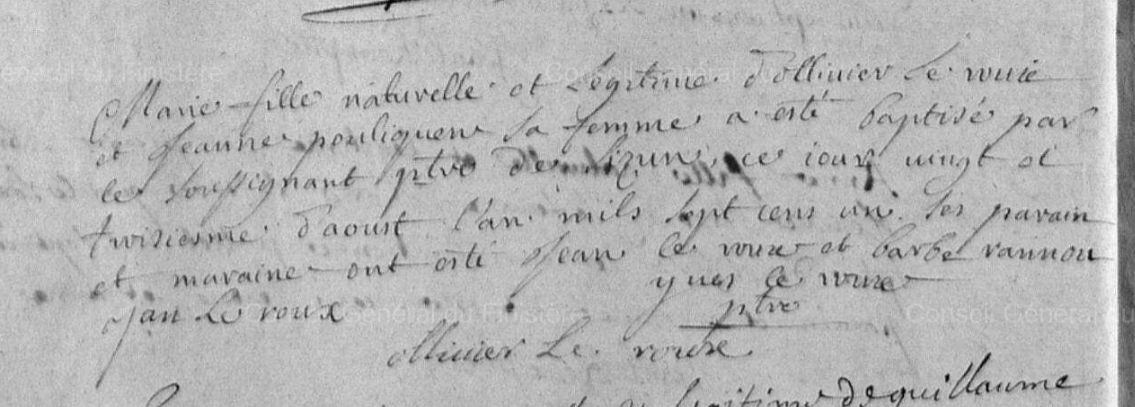 Marie fille naturelle et Legitime d'ollivier Le roux
et Jeanne pouliquen sa femme a esté baptisé par
le soussignant ptre de sizun ce iour vingt et
troisiesme d'aoust l'an mils sept cens un. ses parain
et maraine ont esté Jean le roux et barbe rannou
Jan Le roux yves le roux
ptre
ollivier Le roux
legitime de guillaume